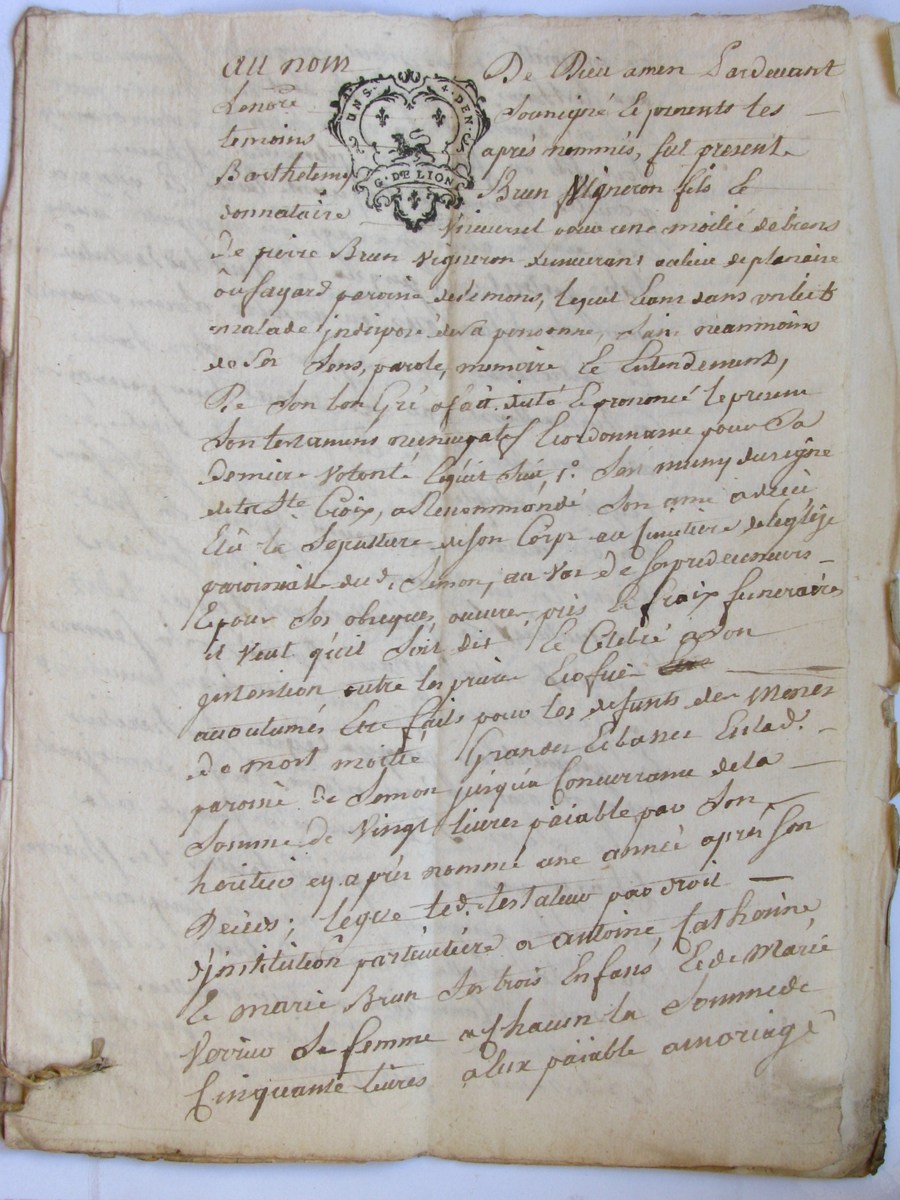 au nom De Dieu amen Pardevant
Lenore Sousigné & presents les
temoins après nommés, fut present
Barthelemy Brun Vigneron fils &
donnataire Vniversel pour une moitié de biens
UNS. 4. DEN.
G. DE LION
De pierre Brun Vigneron demeurant au lieu de planaire
ou fayard paroisse de Simons, lequel Etant dans un lict
malade jndisposé de sa personne, Sain neanmoins
de ses Sens, parole, memoire & Entendement,
De Son bon Gré a fait, dicté & prononcé le present
Son testament nuncupatif & ordonnance pour Sa
derniere Volonté Cequit Suit, 1° S'est muny du signe
de la Ste Croix, a Recommandé Son ame a dieu
Elû la Sepulture de Son Corps au Cimetiere de l'eglize
paroissiale dud. Simon, au Vas de Ses predecesseurs
& pour Ses obseques, oeuvres pies & fraix funeraires
il Veut qu'il Soit dit & Celebré a Son
jntention outre les prieres & offices
accoutumés Etre faits pour les defunts des Messes
de mort moitié Grandes & basses En lad.
paroisse de Simon jusqu'a Concurrance de la
Somme de Vingt livres païable par Son
heritier cy après nommé une année après Son
Decès; legue led. testateur par droit
d'jnstitution particuliere a antoine, Catherine
& marie Brun Ses trois Enfans & de Marie
Verrier Sa femme a Chacun la Somme de
Cinquante livres a Eux païable a mariage